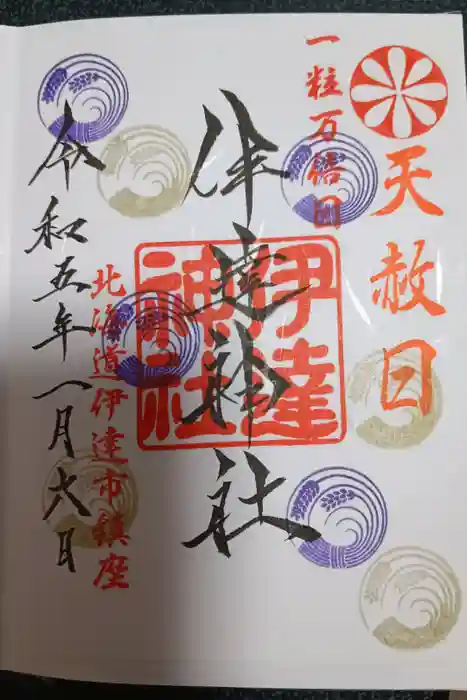 天赦日
一粒万倍日
伊達神社
伊達
神社
北海道伊達市鎮座
令和五年一月六日